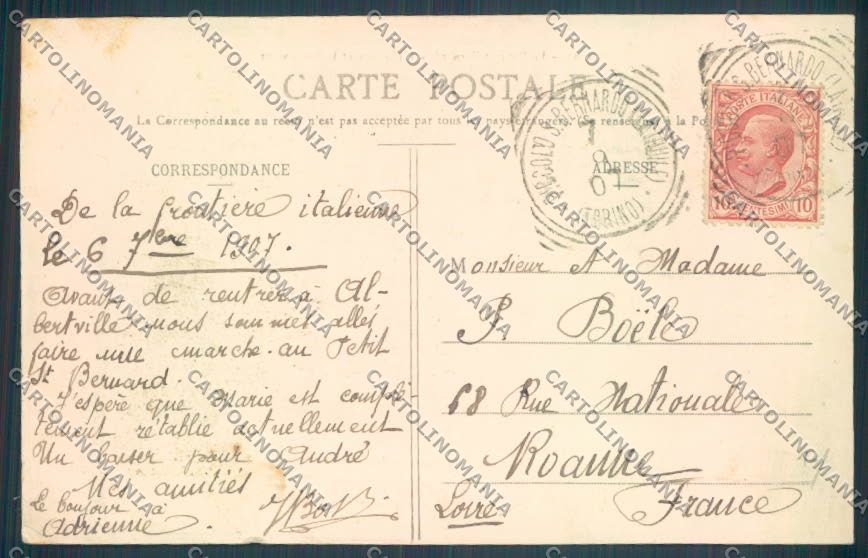 CARTE POSTALE
La Correspondance au recto n'est pas acceptée par tous les pays étrangers. (Se renseigner à la Poste
CORRESPONDANCE
ADRESSE
PICCOLO S. BERNARDO (LA THUILE)
1
9
07
(TORINO)
POSTE ITALIANE
10 CENTESIMI 10
De la frontière italienne
Le 6 7bre 1907.
Avant de rentrer à Al-
bertville nous sommes allés
faire une marche au Petit
St Bernard.
J'espère que Marie est complè-
tement rétablie actuellement
Un baiser pour André
Mes amitiés
Le bonjour à
Adrienne.
Monsieur & Madame
P. Boële
68 Rue Nationale
Roanne
Loire France
CARTOLINOMANIA